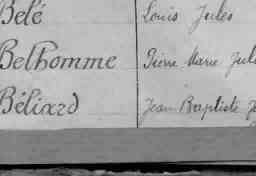 Belé Louis Jules
Belhomme Pierre Marie Jul
Béliard Jean Baptiste J